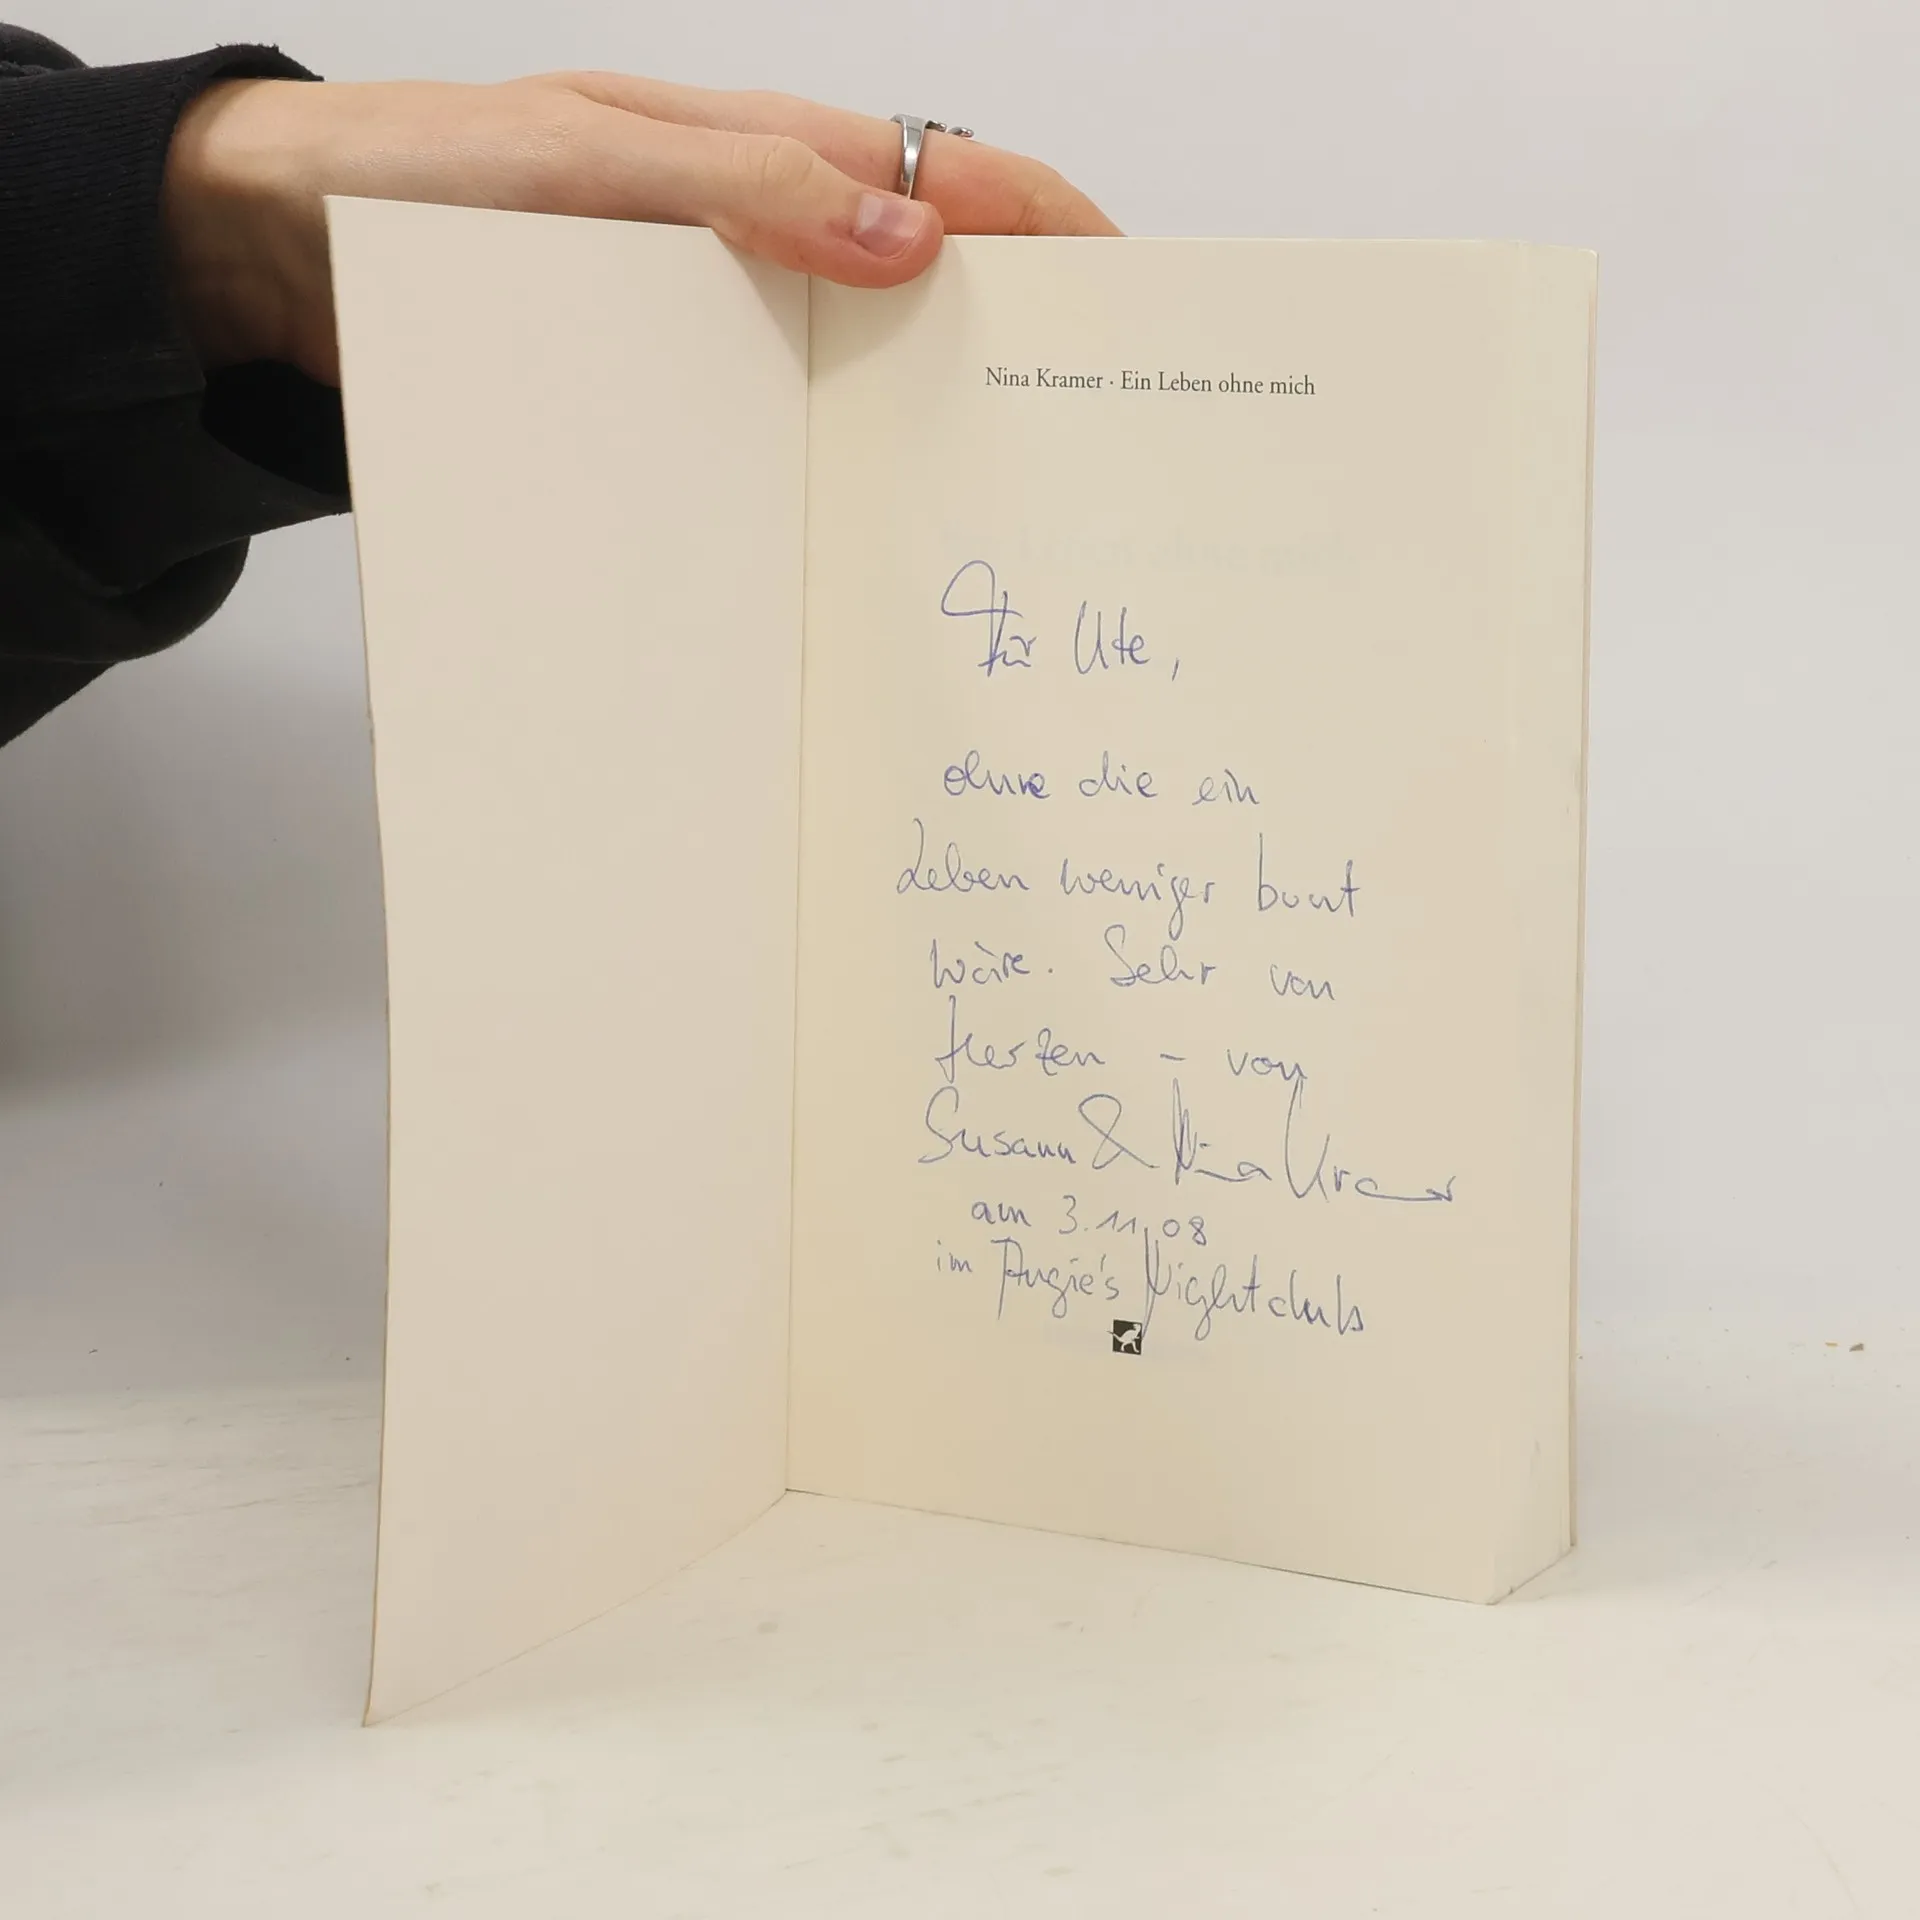 Nina Kramer · Ein Leben ohne mich
Für Ute,
ohne die ein
Leben weniger bunt
wäre. Sehr von
Herzen – von
Susann & Nina Kramer
am 3.11.08
im Angie's Nightclub